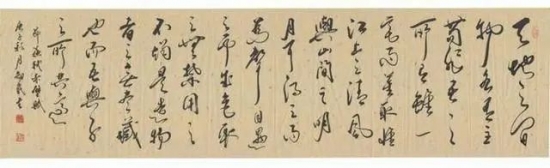 天地之間
物各有主
苟非吾之
所有雖一
毫而莫取惟
江上之清風
與山間之明
月耳得之而
為聲目遇
之而成色取
之無禁用之
不竭是造物
者之無盡藏
也而吾與子
之所共適
赤壁賦
月書